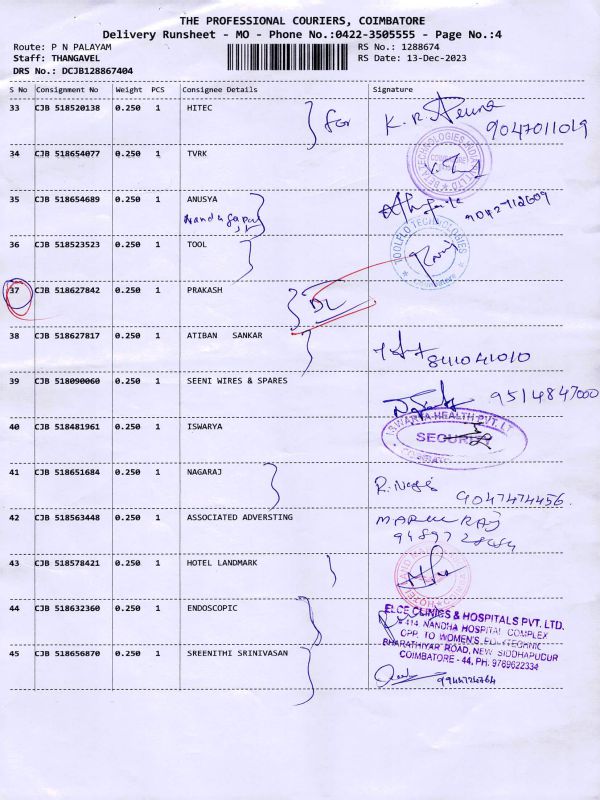 THE PROFESSIONAL COURIERS, COIMBATORE
Delivery Runsheet - MO - Phone No.:0422-3505555 - Page No.:4
Route: P N PALAYAM RS No.: 1288674
Staff: THANGAVEL RS Date: 13-Dec-2023
DRS No.: DCJB128867404
S No Consignment No Weight PCS Consignee Details Signature
33 CJB 518520138 0.250 1 HITEC for 9047011019
34 CJB 518654077 0.250 1 TVRK
35 CJB 518654689 0.250 1 ANUSYA
36 CJB 518523523 0.250 1 TOOL
TOOLFLO TECHNOLOGIES
37 CJB 518627842 0.250 1 PRAKASH DL
38 CJB 518627817 0.250 1 ATIBAN SANKAR
39 CJB 518090060 0.250 1 SEENI WIRES & SPARES 9514847000
40 CJB 518481961 0.250 1 ISWARYA
ISWARYA HEALTH PVT. LT
SECURITY
41 CJB 518651684 0.250 1 NAGARAJ 9047474456
42 CJB 518563448 0.250 1 ASSOCIATED ADVERSTING
43 CJB 518578421 0.250 1 HOTEL LANDMARK
44 CJB 518632360 0.250 1 ENDOSCOPIC
ELCE CLINICS & HOSPITALS PVT. LTD.
414 NANDHA HOSPITAL COMPLEX
OPP. TO WOMEN'S POLYTECHNIC
BHARATHIYAR ROAD, NEW SIDDHAPUDUR
COIMBATORE - 44, PH: 9769622334
45 CJB 518656870 0.250 1 SREENITHI SRINIVASAN